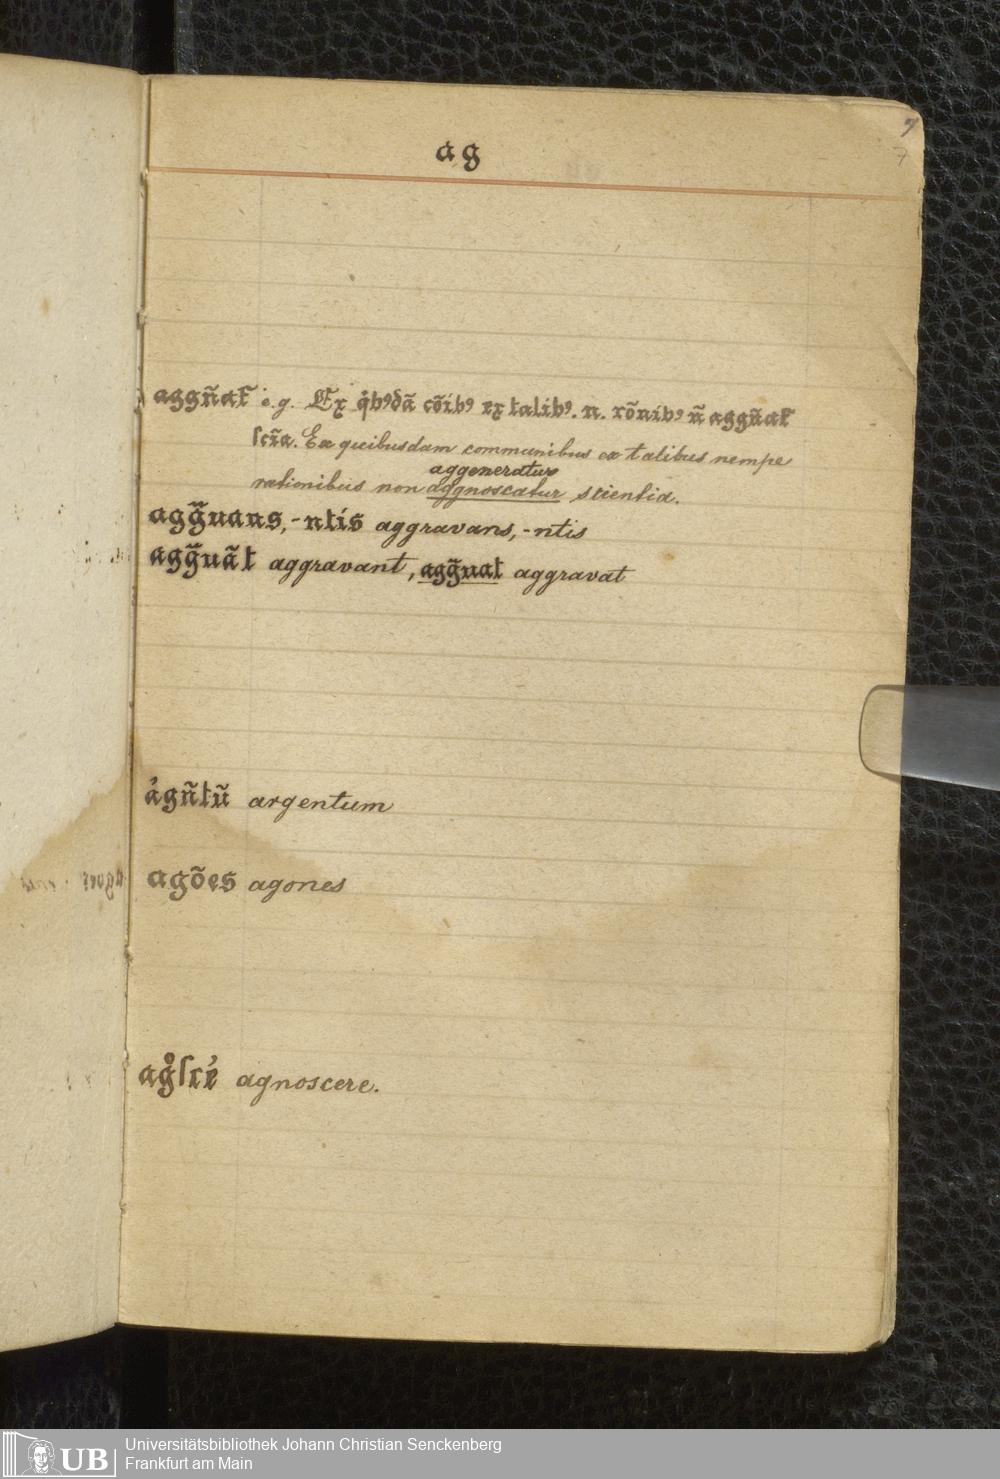 7
ag
7
aggñat᷑ e.g. Ex q̇bꝰdã cõibꝰ ex talibꝰ. n. rõnibꝰ ñ aggñat᷑
ſcĩa. Ex quibusdam communibus ex talibus nempe
aggeneratur
rationibus non aggnoscatur scientia.
agg̃uans, -ntis aggravans, -ntis
agg̃uãt aggravant, agg̃uat aggravat
a᷒gñtũ argentum
agões agones
agͦſce᷒ agnoscere.
UB
Universitätsbibliothek Johann Christian Senckenberg
Frankfurt am Main